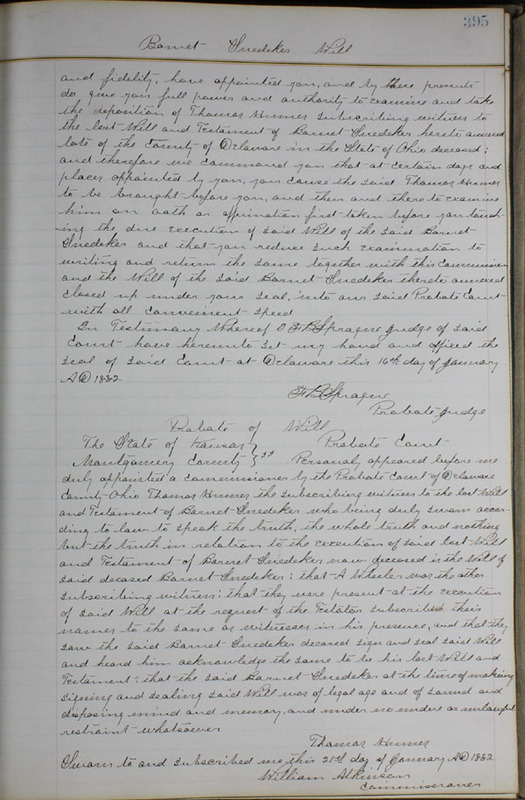 395
Barnet Snedeker Will
and fidelity, have appointed you, and by these presents
do give you full power and authority to examine and take
the deposition of Thomas subscribing witness to
the last Will and Testament of Barnet Snedeker hereto annexed
late of the County of Delaware in the State of Ohio deceased;
and therefore we command you that at certain days and
places appointed by you, you cause the said Thomas
to be brought before you, and then and there to examine
him on oath or affirmation first taken before you touch-
ing the due execution of said Will of the said Barnet
Snedeker and that you reduce such examination to
writing and return the same together with this Commission
and the Will of the said Barnet Snedeker thereto annexed
closed up under your seal, into our said Probate Court
with all convenient speed
In Testimony Whereof I Sprague Judge of said
Court have hereunto set my hand and affixed the
seal of said Court at Delaware this 16th day of January
AD 1882
Sprague
Probate Judge
Probate of Will
The State of Kansas } Probate Court
Montgomery County } ss Personally appeared before me
duly appointed a commissioner by the Probate Court of Delaware
County Ohio Thomas the subscribing witness to the last Will
and Testament of Barnet Snedeker who being duly sworn accor-
ding to law to speak the truth, the whole truth and nothing
but the truth in relation to the execution of said last Will
and Testament of Barnet Snedeker now deceased is the Will of
said deceased Barnet Snedeker; that A Wheeler was the other
subscribing witness; that they were present at the execution
of said Will at the request of the Testator subscribed their
names to the same as witnesses in his presence, and that they
saw the said Barnet Snedeker deceased sign and seal said Will
and heard him acknowledge the same to be his last Will and
Testament; that the said Barnet Snedeker at the time of making
signing and sealing said Will was of legal age and of sound and
disposing mind and memory, and under no undue or unlawful
restraint whatsoever
Thomas
Sworn to and subscribed me this 21st day of January AD 1882
William Atkinson
Commissioner